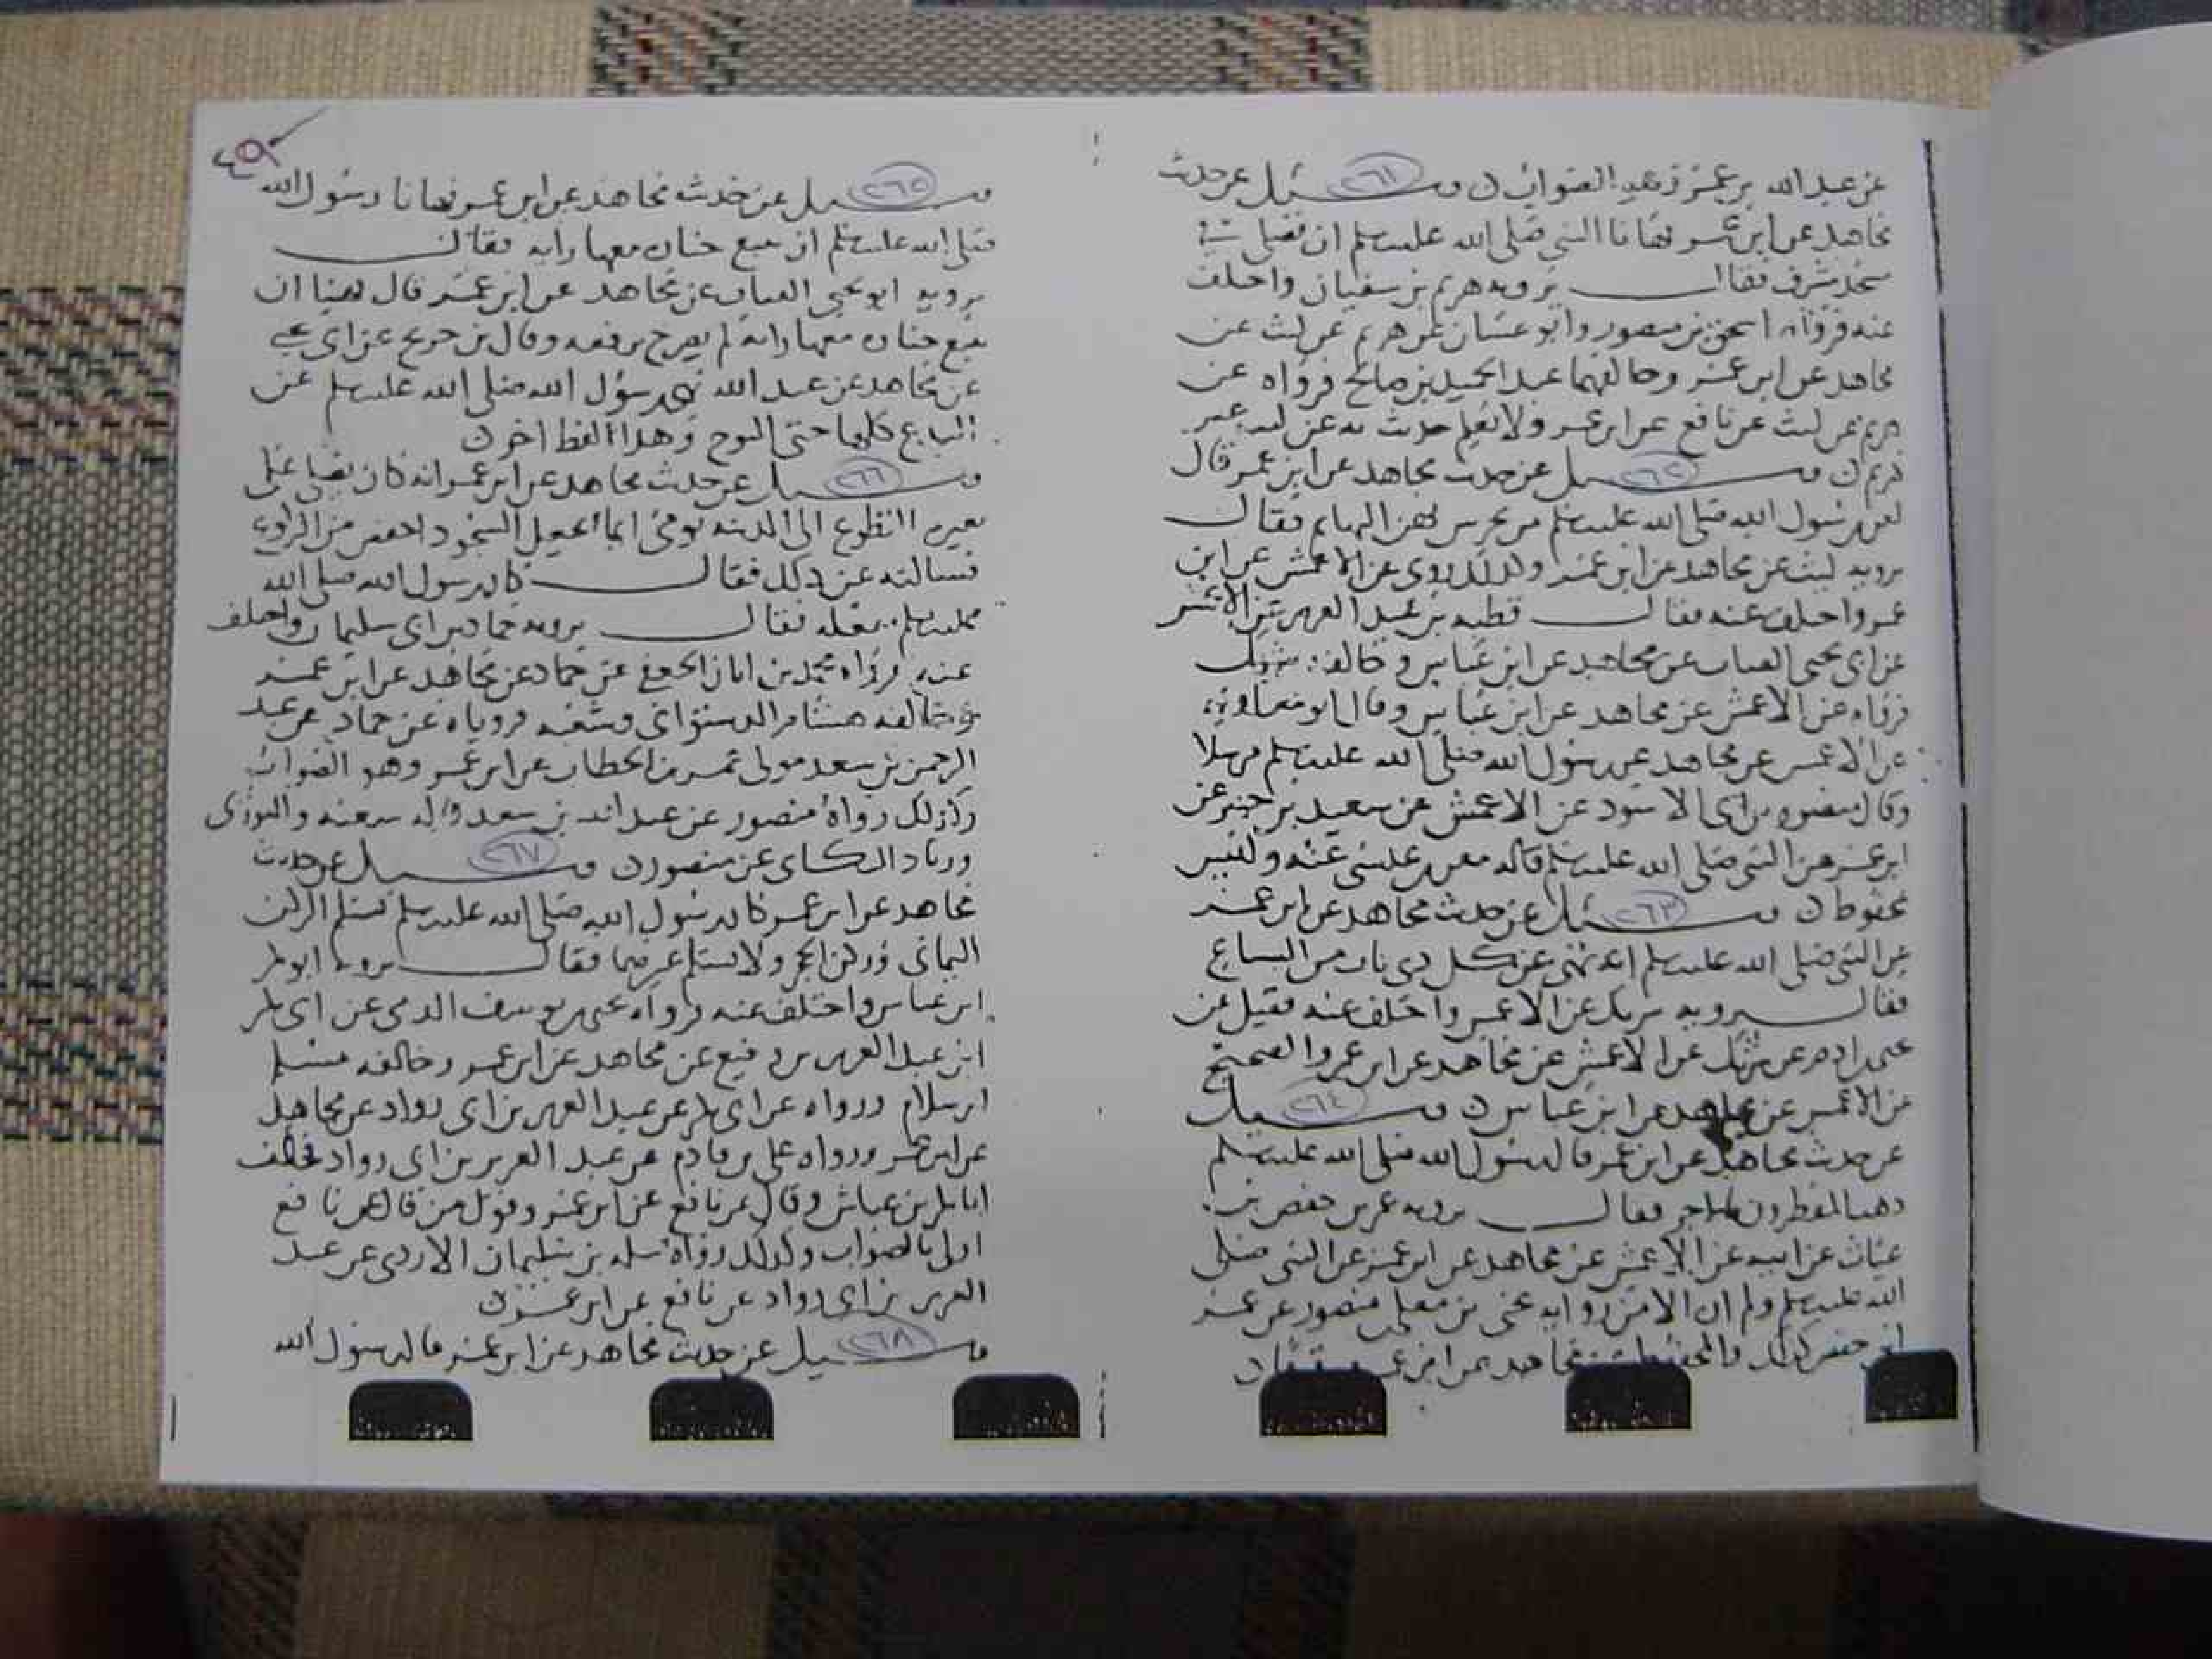 عن عبد الله بن عمر وهو الصواب ن وسئل ٢٦١ عن حديث
مجاهد عن ابن عمر نهانا النبي صلى الله عليه وسلم ان نصلي في
مسجد مشرف فقال يرويه هريم بن سفيان واختلف
عنه فرواه اسحق بن منصور وابو غسان عن هريم عن ليث عن
مجاهد عن ابن عمر وخالفهما عبد الحميد بن صالح فرواه عن
هريم عن ليث عن نافع عن ابن عمر ولا نعلم حدث به عن ليث غير
هريم ن وسئل ٢٦٢ عن حديث مجاهد عن ابن عمر قال
نهى رسول الله صلى الله عليه وسلم من تحريش بين البهائم فقال
يرويه ليث عن مجاهد عن ابن عمر وكذلك روي عن الاعمش عن ابن
عمر واختلف عنه فقال قطبة بن عبد العزيز عن الاعمش
عن ابي يحيى القتات عن مجاهد عن ابن عباس وخالفه شريك
فرواه عن الاعمش عن مجاهد عن ابن عباس وقال ابو معاوية
عن الاعمش عن مجاهد عن رسول الله صلى الله عليه وسلم مرسلا
وقال منصور بن ابي الاسود عن الاعمش عن سعيد بن جبير عن
ابن عمر عن النبي صلى الله عليه وسلم قاله عنه وليس
بمحفوظ ن وسئل ٢٦٣ عن حديث مجاهد عن ابن عمر
عن النبي صلى الله عليه وسلم انه نهى عن كل ذي ناب من السباع
فقال يرويه شريك عن الاعمش واختلف عنه فقيل عن
عن شريك عن الاعمش عن مجاهد عن ابن عمر والصحيح
عن الاعمش عن مجاهد عن ابن عباس ن وسئل ٢٦٤
عن حديث مجاهد عن ابن عمر قال رسول الله صلى الله عليه وسلم
ذهب المفطرون بالاجر فقال يرويه عمر بن حفص بن
غياث عن ابيه عن الاعمش عن مجاهد عن ابن عمر عن النبي صلى
الله عليه وسلم ولم ار الا من رواية منصور عن عمر
ابن حفص كذلك والمحفوظ عن مجاهد
٢٦٥ وسئل عن حديث مجاهد عن ابن عمر نهانا رسول الله
صلى الله عليه وسلم ان نتبع جنازة معها رانة فقال
يرويه ابو يحيى القتات عن مجاهد عن ابن عمر قال نهينا ان
نتبع جنازة معها رانة لم يصرح برفعه وقال بن جريج عن ابي يحيى
عن مجاهد عن عبد الله نهى رسول الله صلى الله عليه وسلم عن
كلها حتى النوح وهذا لفظ اخر ن
٢٦٦ وسئل عن حديث مجاهد عن ابن عمر انه كان يصلي على
بعيره التطوع الى المدينة يومئ ايماء يجعل السجود اخفض من الركوع
فسالته عن ذلك فقال كان رسول الله صلى الله
عليه وسلم يفعله فقال يرويه حماد بن ابي سليمان واختلف
عنه فرواه محمد بن ابان الجعفي عن حماد عن مجاهد عن ابن عمر
وخالفه هشام الدستوائي وشعبة فروياه عن حماد عن عبد
الرحمن بن سعد مولى عمر بن الخطاب عن ابن عمر وهو الصواب
وكذلك رواه منصور عن عبد الرحمن بن سعد قاله شعبة والثوري
وزياد البكائي عن منصور ن وسئل ٢٦٧ عن حديث
مجاهد عن ابن عمر كان رسول الله صلى الله عليه وسلم يستلم الركن
اليماني وركن الحجر ولا يستلم غيرهما فقال يرويه ابو بكر
ابن عياش واختلف عنه فرواه يحيى بن يوسف الذمي عن ابي بكر
ابن عبد العزيز بن رفيع عن مجاهد عن ابن عمر وخالفه مسلم
ابن سلام ورواه عن ابي بكر عن عبد العزيز بن ابي رواد عن مجاهد
عن ابن عمر ورواه علي بن قادم عن عبد العزيز بن ابي رواد فخالف
ابا بكر بن عياش وقال عن نافع عن ابن عمر وقول من قال عن نافع
اولى بالصواب وكذلك رواه سلمة بن سليمان الازدي عن عبد
العزيز بن ابي رواد عن نافع عن ابن عمر ن
٢٦٨ وسئل عن حديث مجاهد عن ابن عمر قال رسول الله